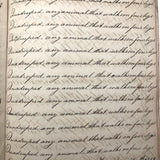 Quadruped, any animal that walks on four legs
Quadruped, any animal that walks on four legs
Quadruped, any animal that walks on four legs
Quadruped, any animal that walks on four legs
Quadruped, any animal that walks on four legs
Quadruped, any animal that walks on four legs
Quadruped, any animal that walks on four legs
Quadruped, any animal that walks on four legs
Quadruped, any animal that walks on four legs
Quadruped, any animal that walks on four legs
Quadruped, any animal that walks on four legs